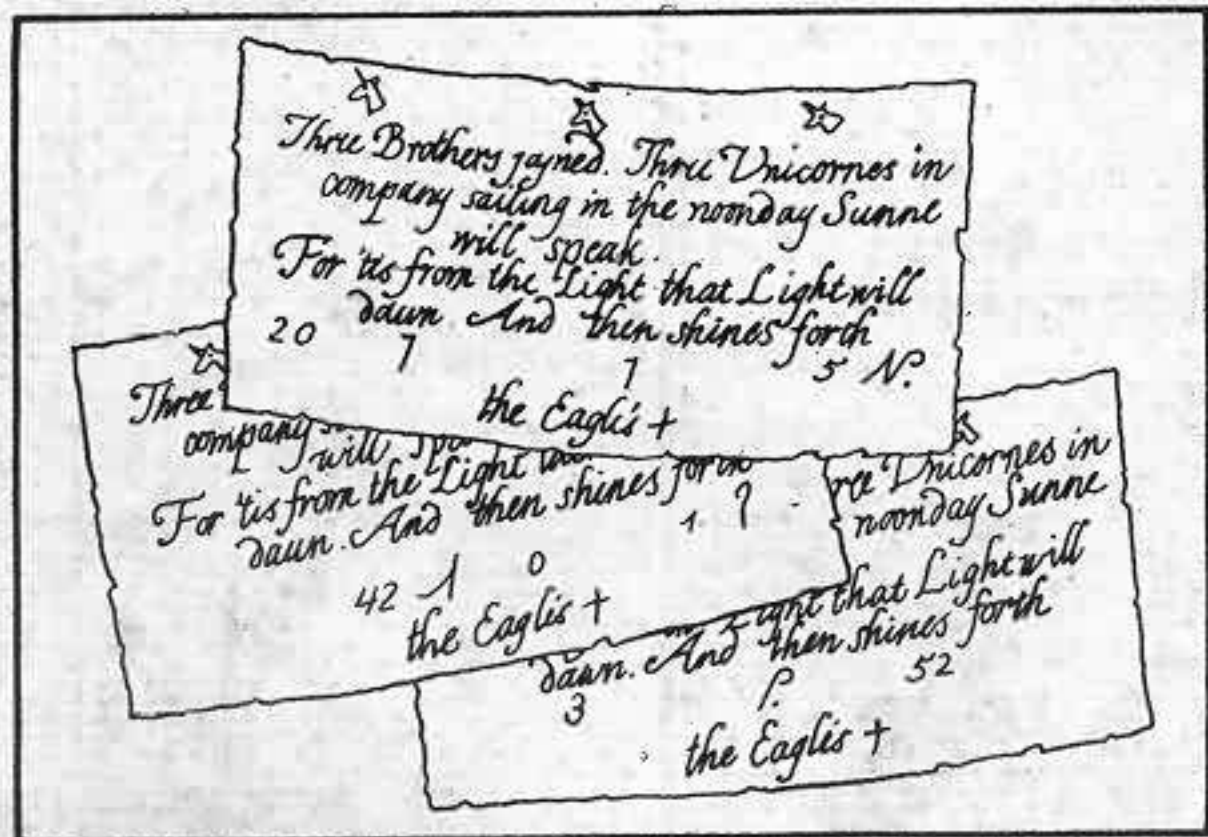 Three Brothers joyned. Three Unicornes in
company sailing in the noonday Sunne
will speak.
For 'tis from the Light that Light will
dawn. And then shines forth
20 7 7 5 N.
the Eagle's +
Three
company
will
For 'tis from the Light
dawn. And then shines forth
1. ?
42 1 0
the Eagle's +
Unicornes in
noonday Sunne
that Light will
dawn. And then shines forth
3 52
the Eagle's +